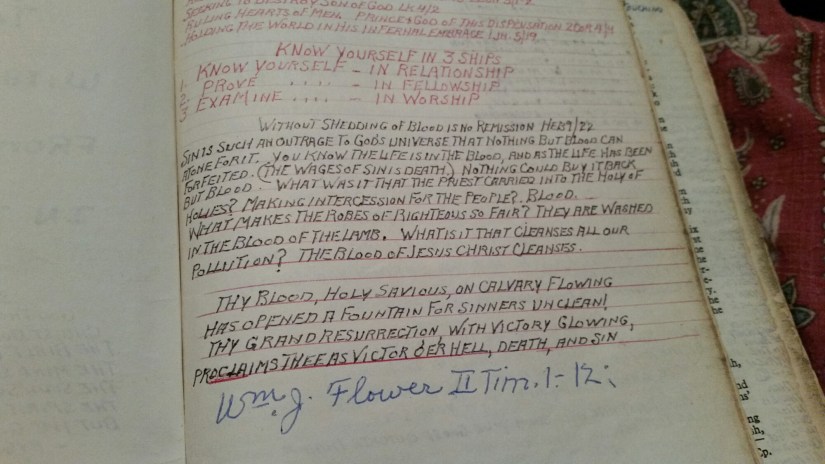 SEEKING TO DESTROY SON OF GOD LK 4/2
RULING HEARTS OF MEN. PRINCE & GOD OF THIS DISPENSATION 2 COR 4/4
HOLDING THE WORLD IN HIS INFERNAL EMBRACE 1 JH. 5/19.
KNOW YOURSELF IN 3 SHIPS
1. KNOW YOURSELF - IN RELATIONSHIP
2. PROVE .... - IN FELLOWSHIP
3 EXAMINE .... - IN WORSHIP
WITHOUT SHEDDING OF BLOOD IS NO REMISSION HEB 9/22
SIN IS SUCH AN OUTRAGE TO GODS UNIVERSE THAT NOTHING BUT BLOOD CAN
ATONE FOR IT. YOU KNOW THE LIFE IS IN THE BLOOD, AND AS THE LIFE HAS BEEN
FORFEITED. (THE WAGES OF SIN IS DEATH.) NOTHING COULD BUY IT BACK
BUT BLOOD. WHAT WAS IT THAT THE PRIEST CARRIED INTO THE HOLY OF
HOLIES? MAKING INTERCESSION FOR THE PEOPLE?. BLOOD.
WHAT MAKES THE ROBES OF RIGHTEOUS SO FAIR? THEY ARE WASHED
IN THE BLOOD OF THE LAMB. WHAT IS IT THAT CLEANSES ALL OUR
POLLUTION? THE BLOOD OF JESUS CHRIST CLEANSES.
THY BLOOD, HOLY SAVIOUS, ON CALVARY FLOWING
HAS OPENED A FOUNTAIN FOR SINNERS UNCLEAN!
THY GRAND RESURRECTION, WITH VICTORY GLOWING,
PROCLAIMS THEE AS VICTOR O'ER HELL, DEATH, AND SIN
Wm. J. Flower II Tim. 1-12: